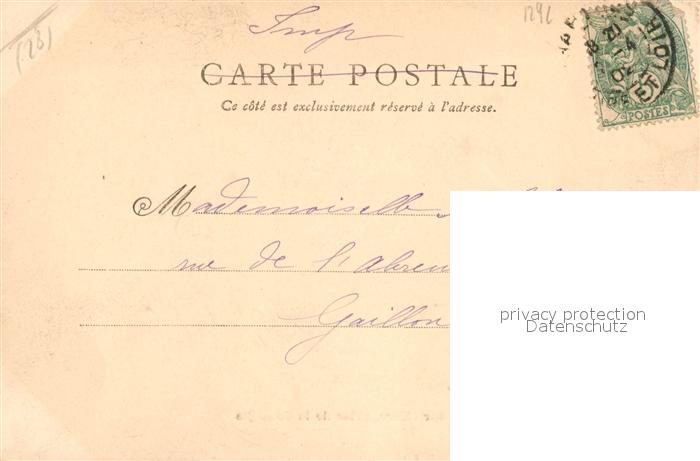 (28)
1292
Imp
CARTE POSTALE
Ce côté est exclusivement réservé à l'adresse.
POSTES
Mademoiselle
rue de l'Abreu
Gaillon
privacy protection
Datenschutz